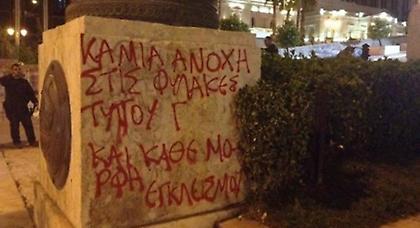 ΚΑΜΙΑ ΑΝΟΧΗ
ΣΤΙΣ ΦΥΛΑΚΕΣ
ΤΥΠΟΥ Γ
ΚΑΙ ΚΑΘΕ ΜΟ
ΡΦΗ ΕΓΚΛΕΙΣΜΟΥ